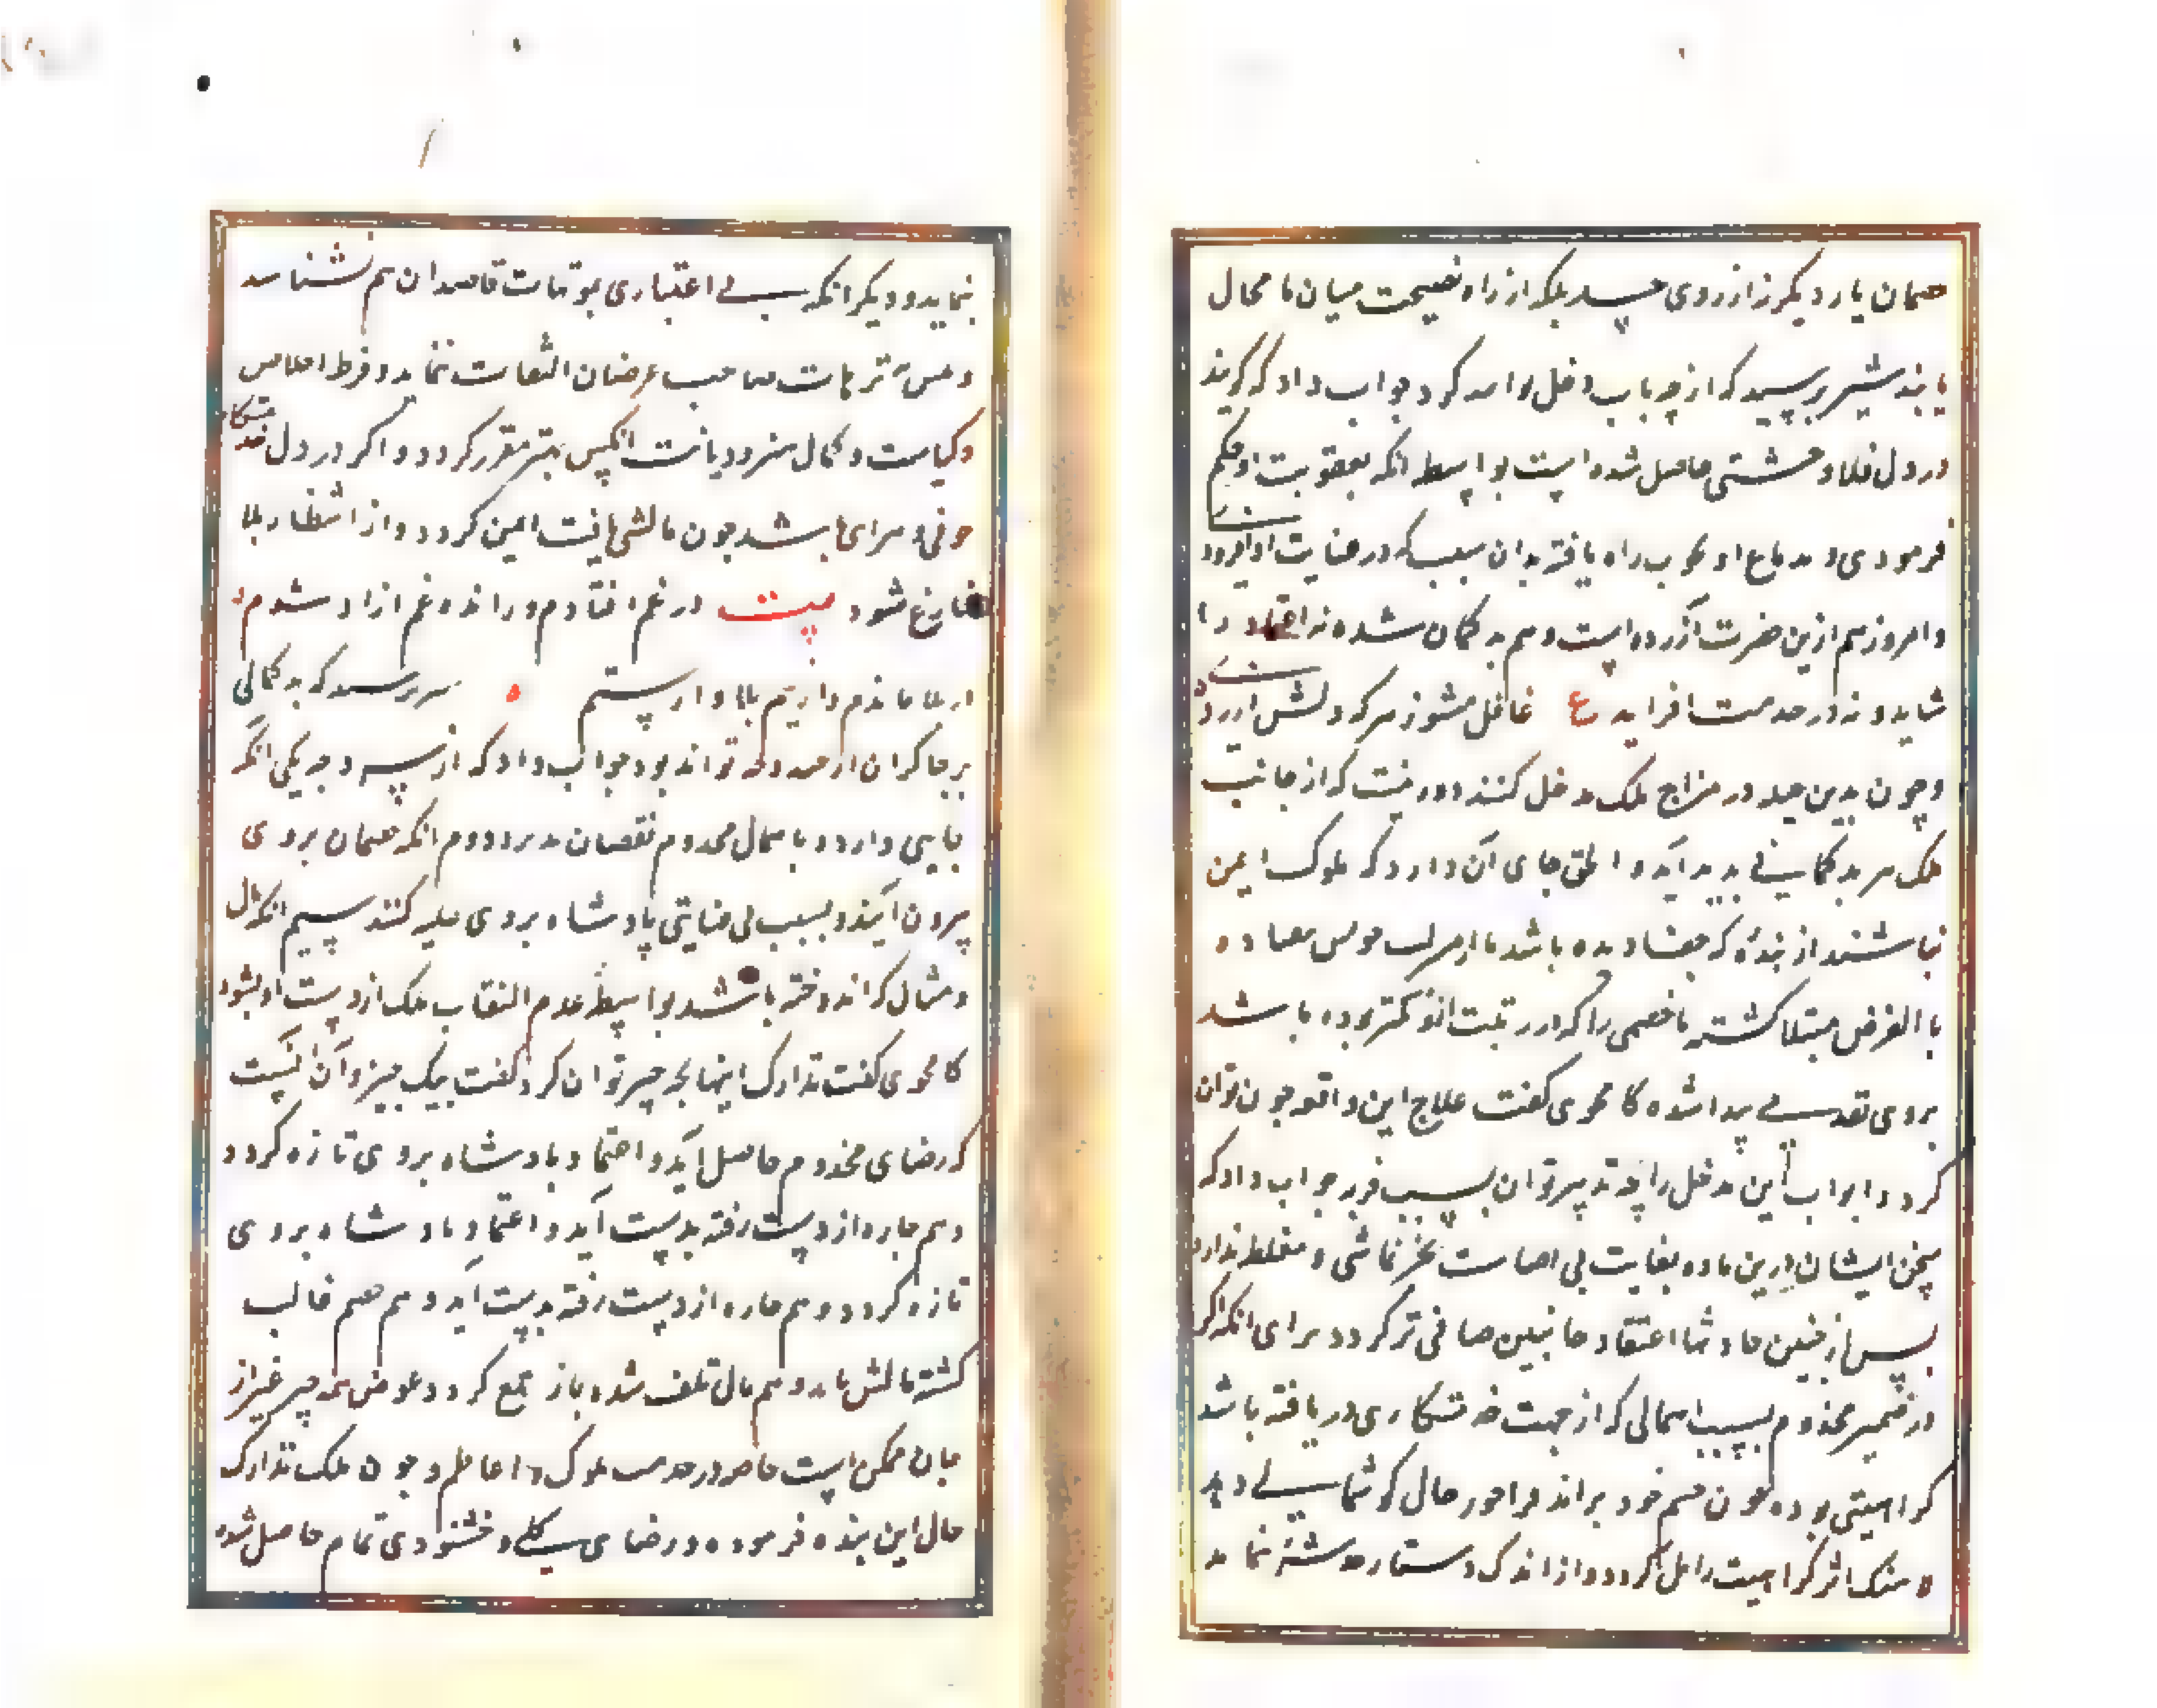 همان یار دیگر نز از روی حسد بلکه از راه نصیحت میان ما محال
یابند شیر پرسید که از چه باب دخل تواند کرد جواب داد که گویند
در دل فلان وحشتی حاصل شده است بواسطه انکه بعقوبت او حکم
فرمودی و بدماغ او راه یافته بدان سبب که در عنایت او
و امروز هم ازین حضرت آزرده است و هم بد کمان شده نه اعتماد را
شاید و نه در خدمت افزاید ع غافل مشو ز هر که دلش ازرد
و چون بدین حیله در مزاج ملک مدخل کنند دور نیست که از جانب
ملک هر بدکمانی پدید آید و الحق جای آن دارد که ملوک ایمن
نباشند از بنده که جفا دیده باشد یا از
یا الغرض مبتلا کشته یا خصمی را که در رتبت ازو کمتر بوده باشد
بروی تقدیمی پیدا شده کامجوی کفت علاج این واقعه چون توان
کرد و ابواب این مدخل را بچه تدبیر توان بست جواب داد که
سخن ایشان درین ماده بغایت بی اصابت
پس از چنین حادثها اعتقاد جانبین صافی تر کردد برای انکه اکر
در ضمیر مخدوم بسبب اهمالی که از جهت خدمتکاری دریافته باشد
کراهیتی بوده چون خشم خود براند فراخور حال کوشمالی دهد
بیشک اثر کراهیت زایل کردد و از اندک و بسیار
بنماید و دیگر انکه بی اعتباری قاصدان هم بشناسد
و پس بترهات صاحب غرضان التفات ننماید و فرط اخلاص
و کیاست و کمال هنر و دیانت انکس بهتر مقرر کردد و اگر در دل خدمتکار
خوفی و هراسی باشد چون مالش یافت ایمن کردد و از انتظار بلا
فارغ شود بیت در غم افتادم و از اندوه غم ازاد شدم
در بلا ماندم و از بیم بلا وارستم شیر پرسید که بد کمانی
بر چاکران از چند وجه تواند بود جواب داد که از سه وجه یکی انکه
جاهی دارد و باهمال مخدوم نقصان پذیرد دوم انکه خصمان بروی
بیرون آیند و بسبب بی عنایتی پادشاه بروی غلبه کنند سیم انکه مال
و منال که اندوخته باشد بواسطه عدم التفات ملک از دست او بشود
کامجوی کفت تدارک اینها بچه چیز توان کرد کفت بیک چیز و آن آنست
که رضای مخدوم حاصل اید و اعتماد پادشاه بروی تازه کردد
و هم جاه از دست رفته بدست آید و اعتماد پادشاه بروی
تازه کردد و هم جاه از دست رفته بدست آید و هم خصم غالب
کشته مالش یابد و هم مال تلف شده باز جمع کردد و عوض همه چیز غیر از
جان ممکن است خاصه در خدمت ملوک و اعاظم و چون ملک تدارک
حال این بنده فرموده و رضای کلی و خشنودی تمام حاصل شده